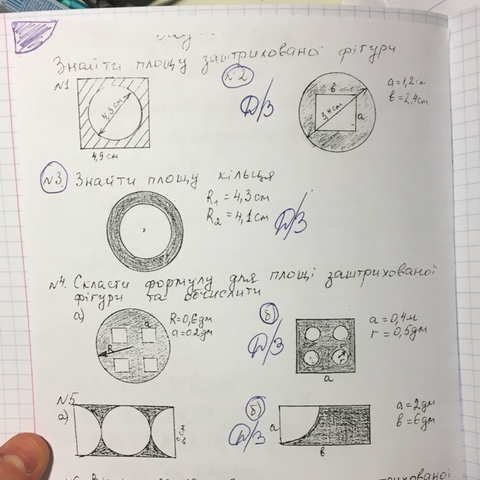 Знайти площу заштрихованої фігури
№1
4,3см
4,9см
№2
Д/З
в
3,4см
а
а=1,2см
в=2,4см
№3. Знайти площу кільця
R₁ = 4,3см
R₂ = 4,1см
Д/З
№4. Скласти формулу для площі заштрихованої
фігури та обчислити
а)
а
R
R=0,6дм
а=0,2дм
б)
Д/З
r
а
а=0,4м
r=0,5дм
№5
а)
б)
Д/З
а
в
а=2дм
в=6дм